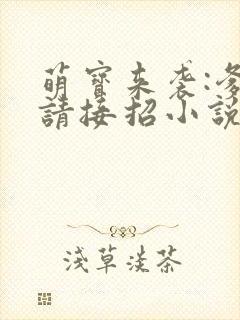 萌寶來襲:爹
請接招小說
淺草淡茶